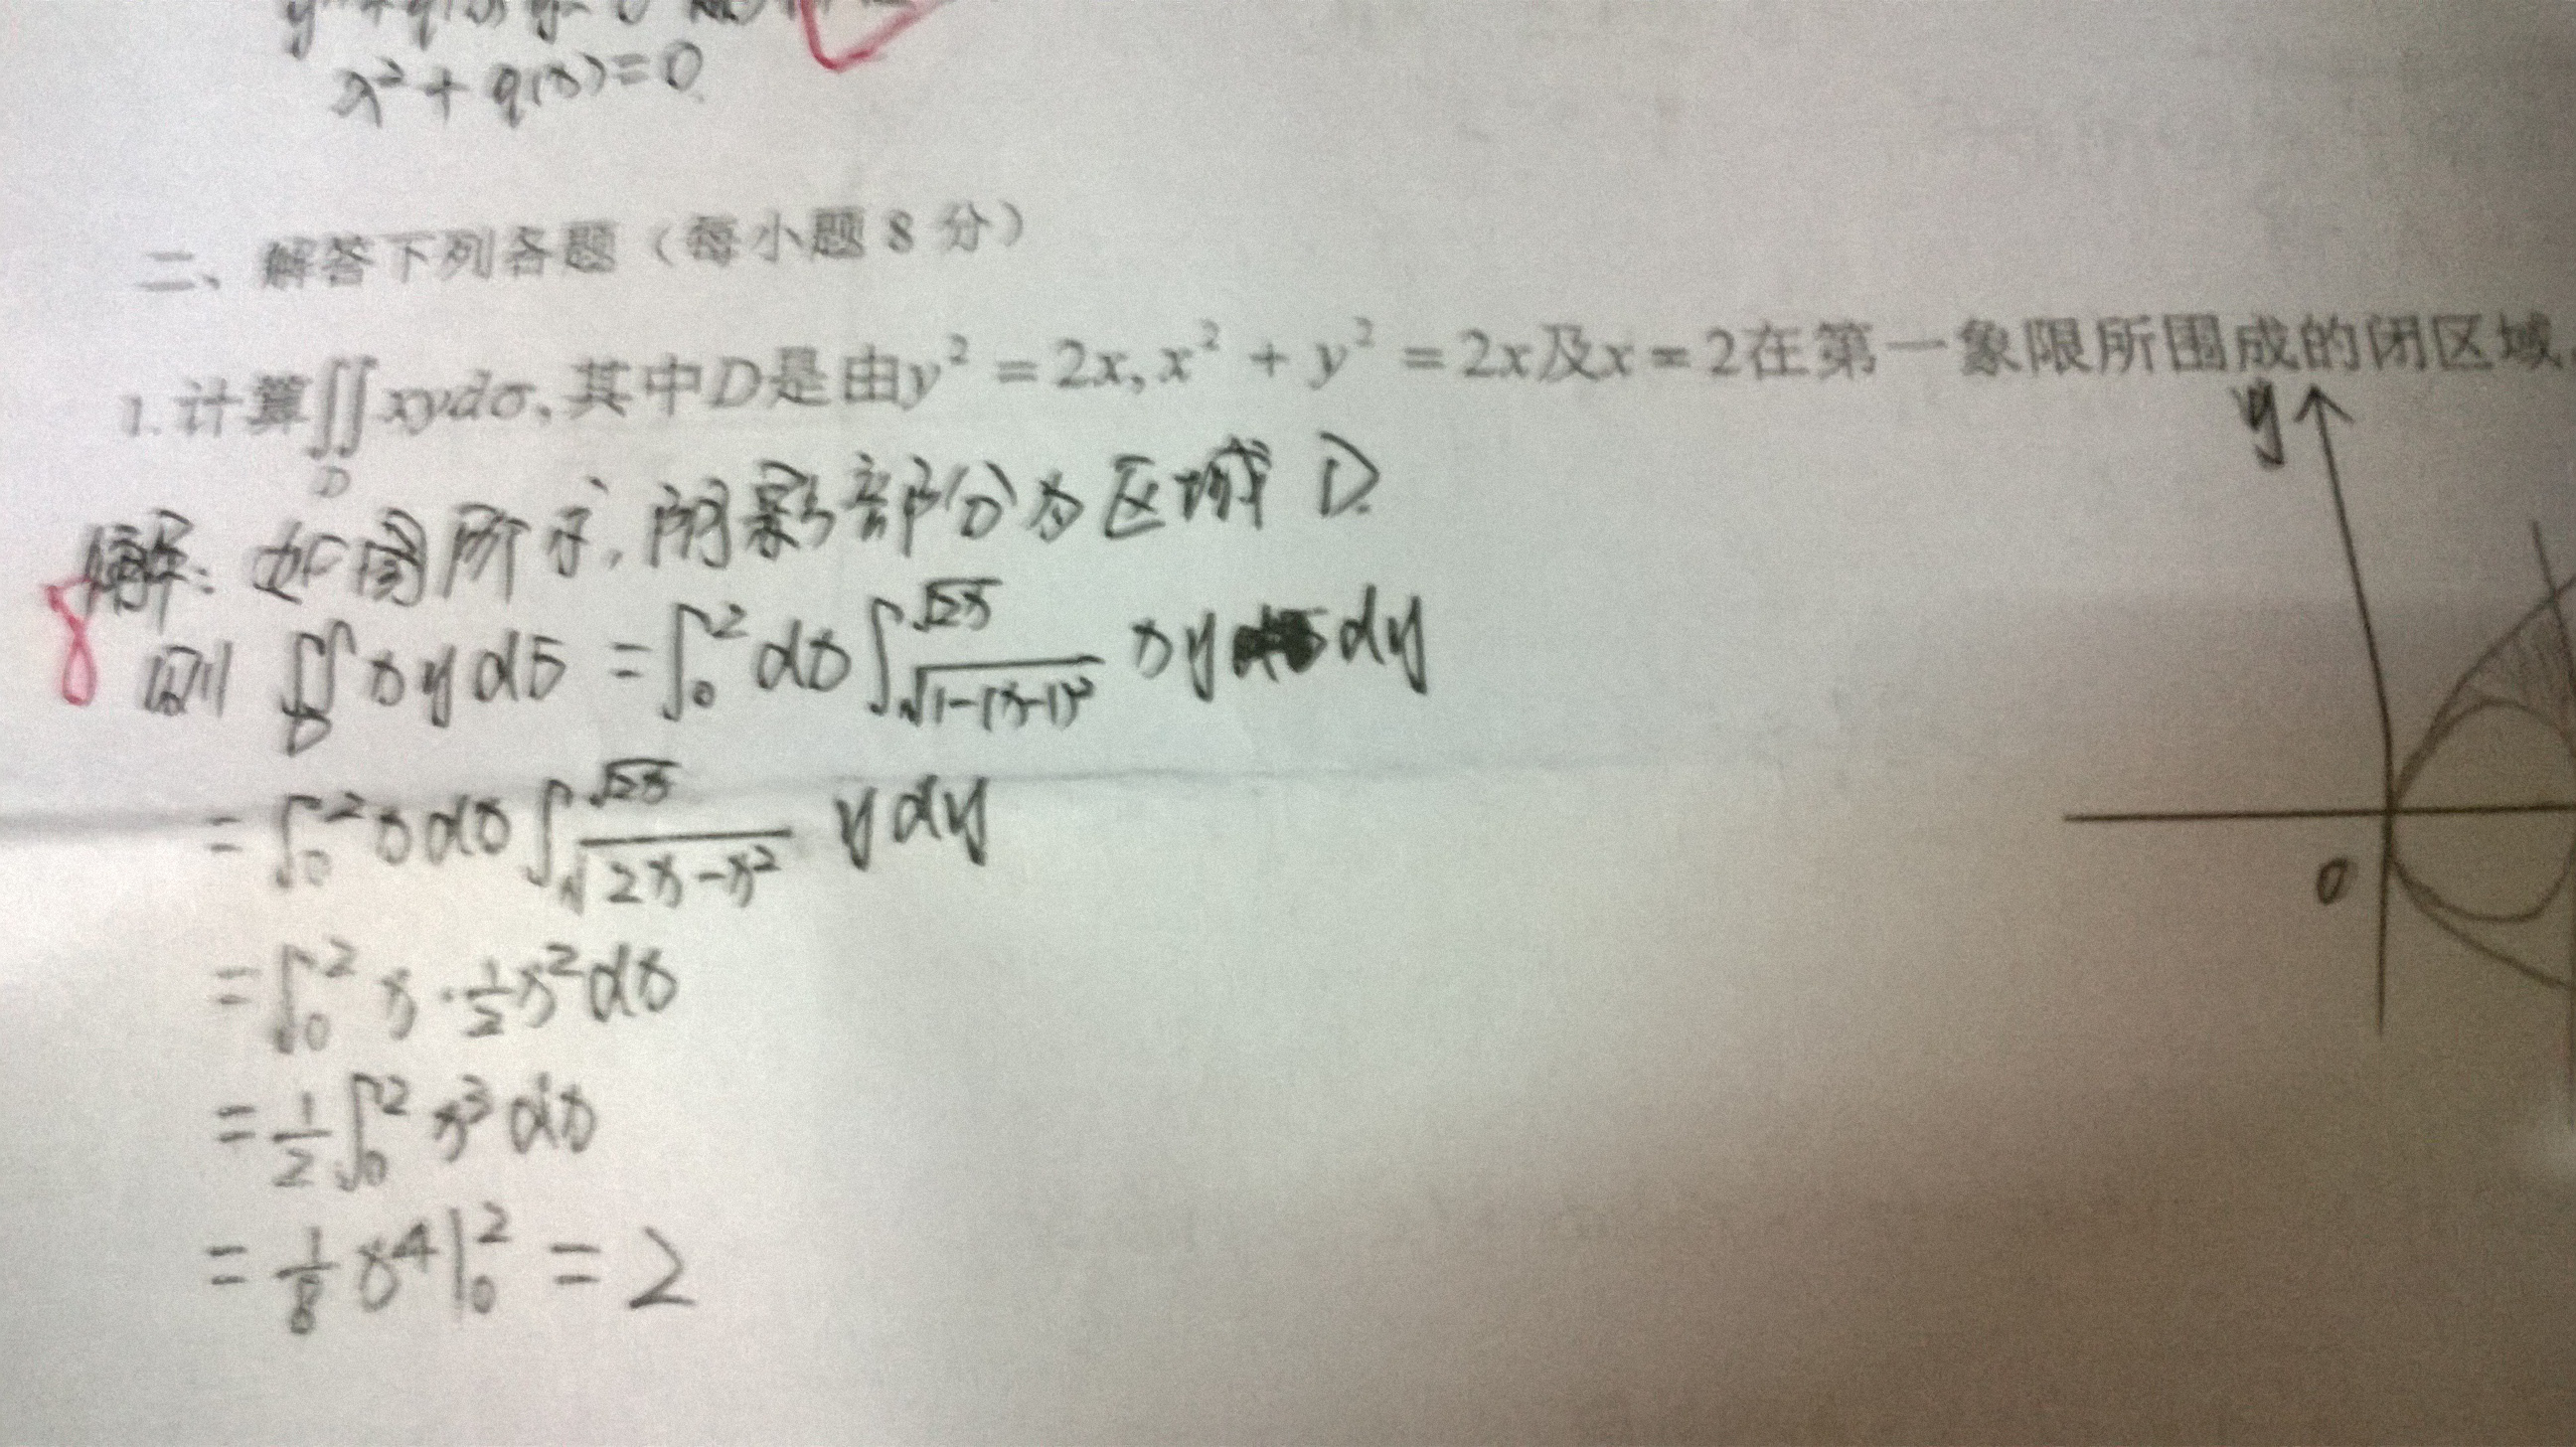 λ²+q(x)=0
二、解答下列各题（每小题 8 分）
1.计算∬xydσ,其中D是由y² = 2x, x² + y² = 2x及x = 2在第一象限所围成的闭区域
D
y
解：如图所示，阴影部分为区域 D.
8
则 ∬_D xydσ = ∫₀² dx ∫_{√(1-(x-1)²)}^{√2x} xy dy
= ∫₀² xdx ∫_{√(2x-x²)}^{√2x} ydy
0
= ∫₀² x·½x²dx
= ½∫₀² x³dx
= ⅛x⁴|₀² = 2